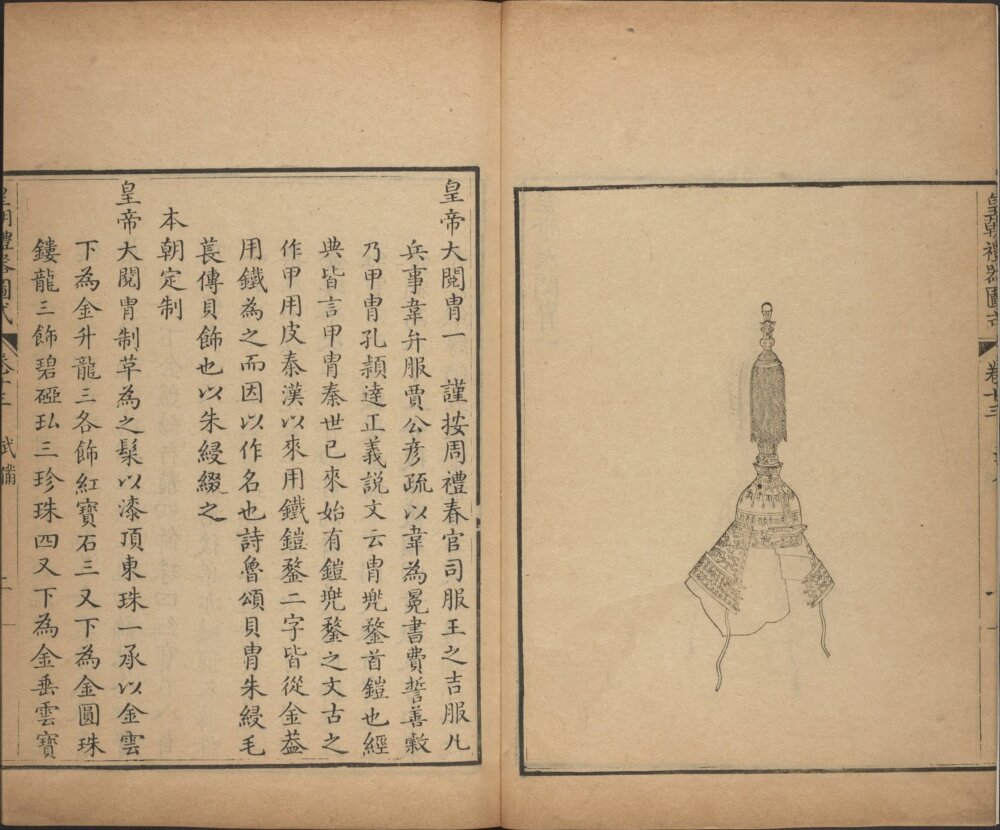 皇朝禮器圖式 卷十三
皇帝大閱冑一 謹按周禮春官司服王之吉服凡
兵事韋弁服賈公彥疏以韋為冕書費誓善敹
乃甲冑孔穎達正義說文云冑兜鍪首鎧也經
典皆言甲冑秦世已來始有鎧兜鍪之文古之
作甲用皮秦漢以來用鐵鎧鍪二字皆從金葢
用鐵為之而因以作名也詩魯頌貝冑朱綅毛
萇傳貝飾也以朱綅綴之
本朝定制
皇帝大閱冑制草為之髹以漆頂東珠一承以金雲
下為金升龍三各飾紅寶石三又下為金圓珠
鏤龍三飾碧碰玜三珍珠四又下為金垂雲寶
皇朝禮器圖式 卷十三 武備